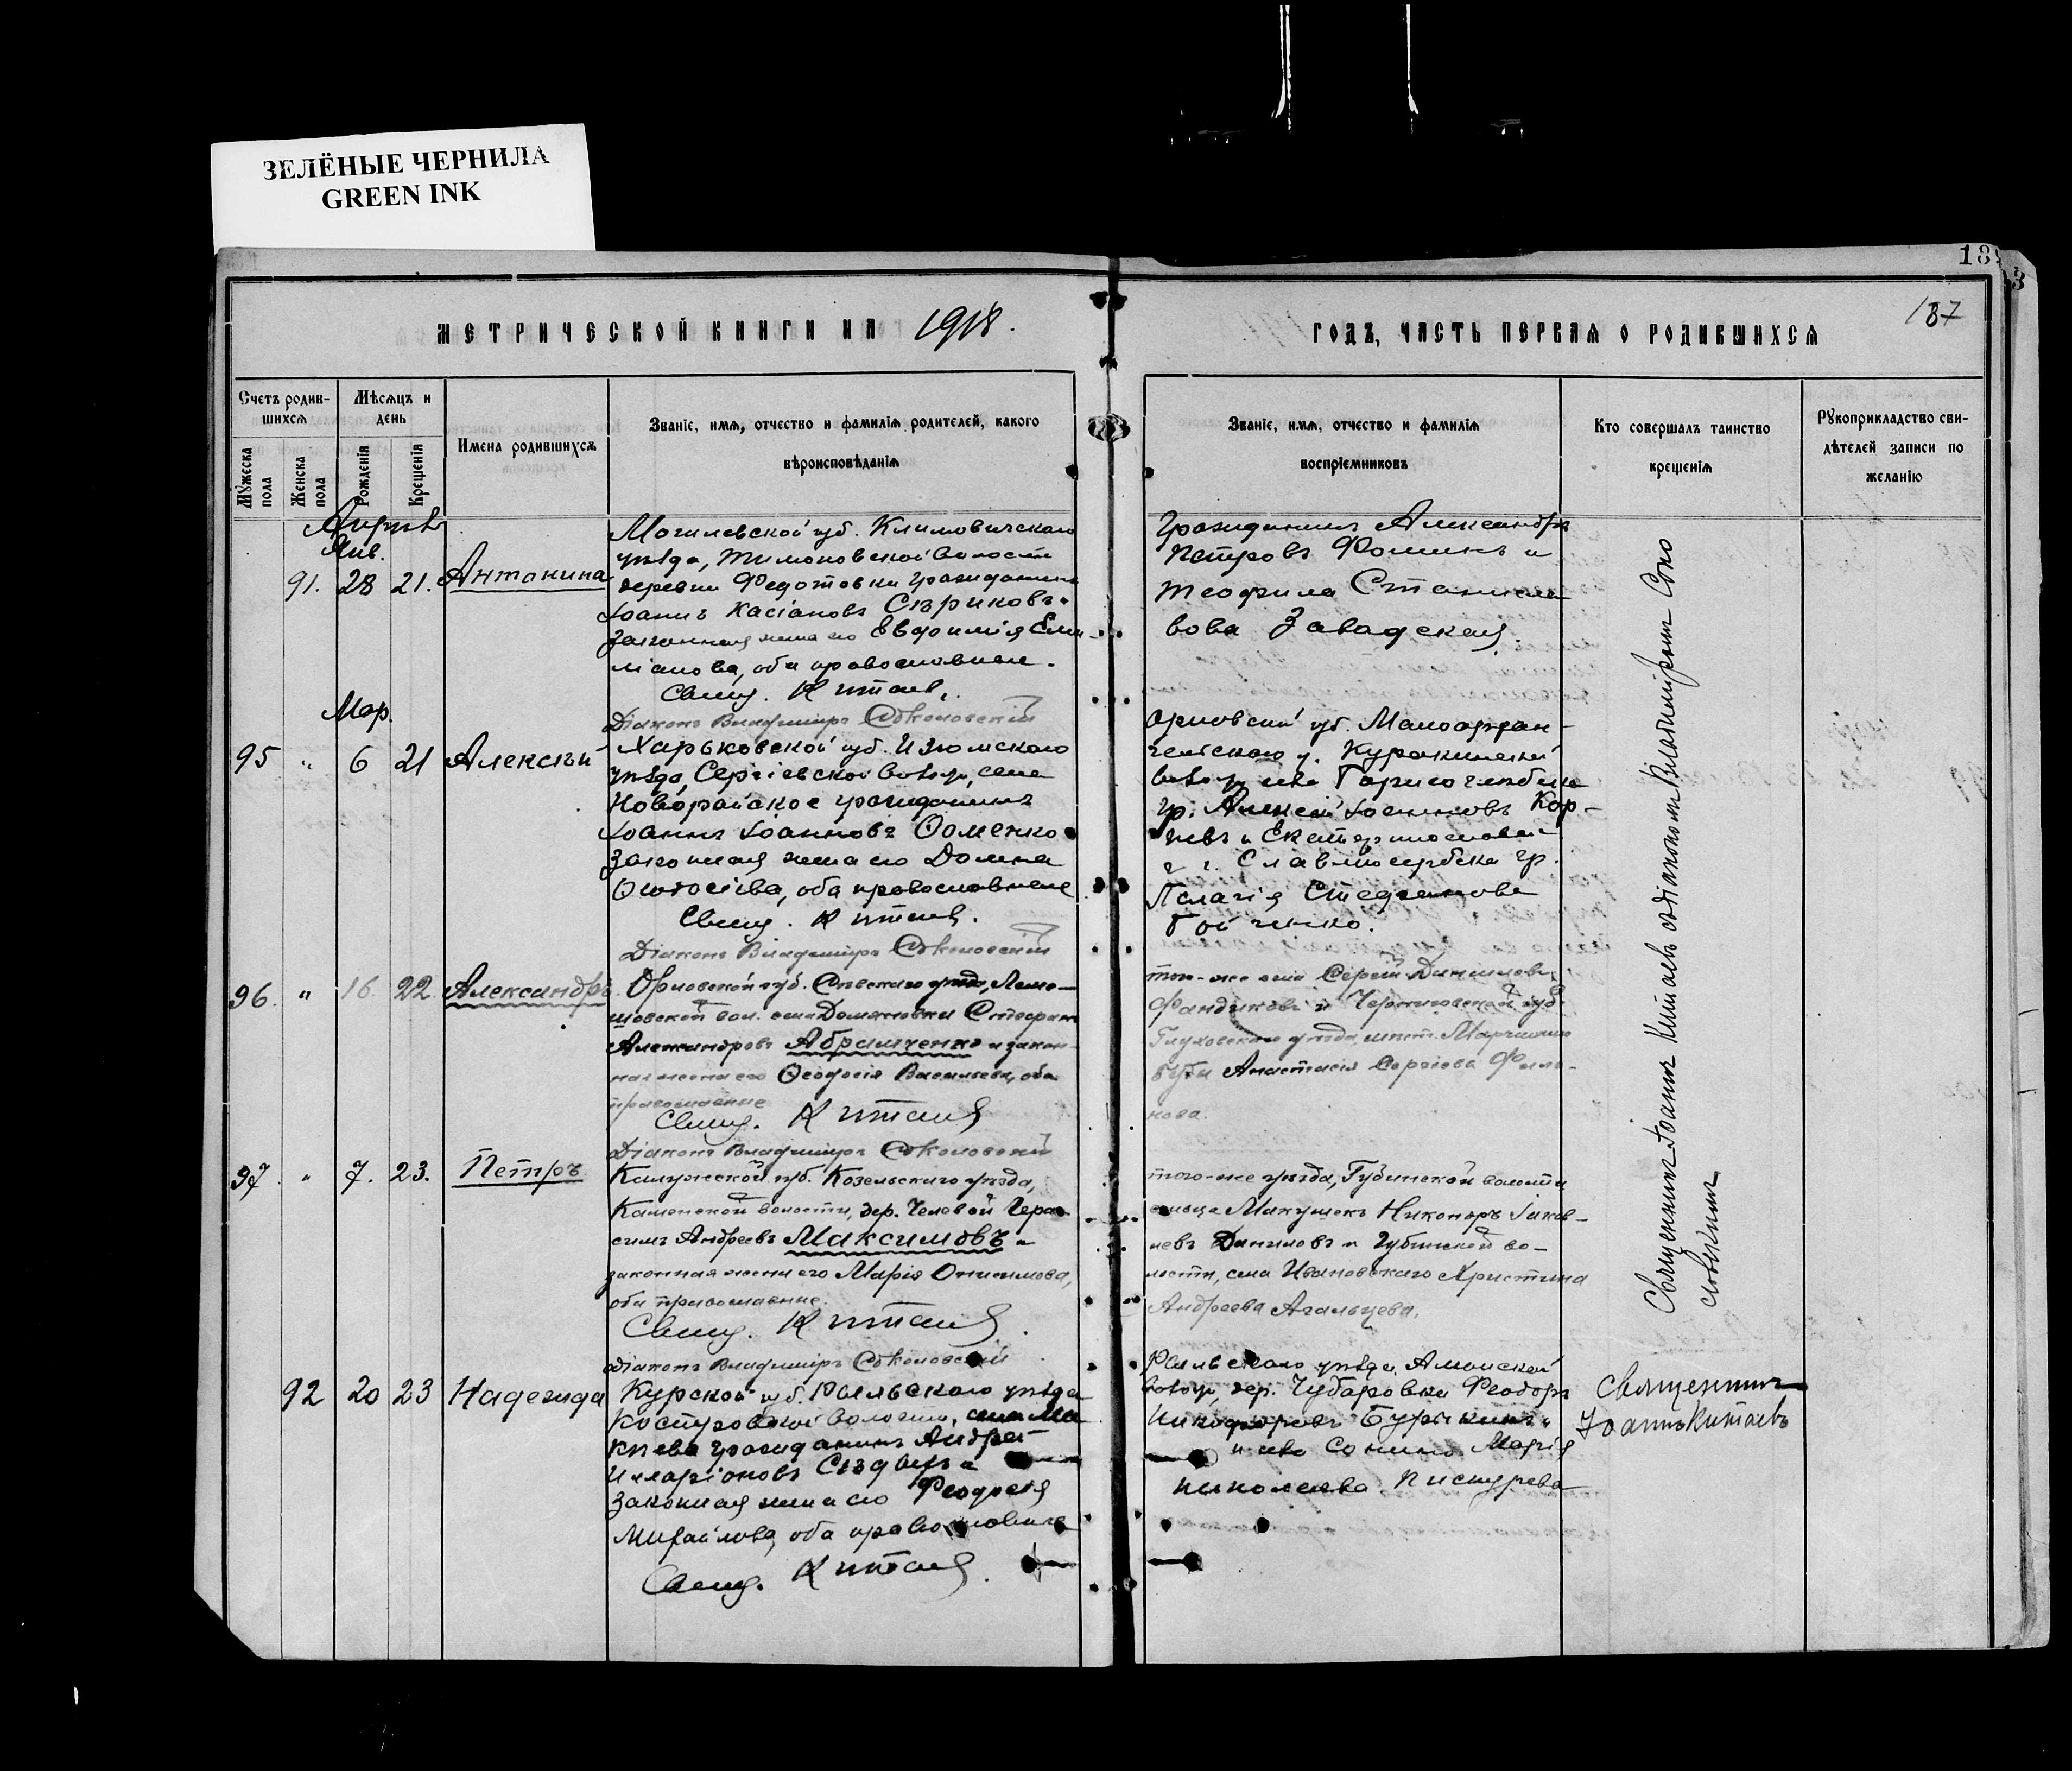 ЗЕЛЁНЫЕ ЧЕРНИЛА
GREEN INK
187
МЕТРИЧЕСКОЙ КНИГИ НА 1918.
ГОДЪ, ЧАСТЬ ПЕРВАЯ О РОДИВШИХСЯ
Счетъ родив-
шихся
Мужеска пола
Женска пола
Мѣсяцъ и
день
Рожденія
Крещенія
Имена родившихся
Званіе, имя, отчество и фамилія родителей, какого
вѣроисповѣданія
Званіе, имя, отчество и фамилія
воспріемниковъ
Кто совершалъ таинство
крещенія
Рукоприкладство сви-
дѣтелей записи по
желанію
Янв.
91. 28 21. Антонина
Могилевской губ. Климовичскаго
уѣзда, Тимоновской волости
деревни Федотовки гражданинъ
Іоаннъ Касіановъ
законная жена его Евфимія Еми-
ліанова, оба православные.
Свящ. Китаевъ.
Гражданинъ Александръ
Петровъ Фоминъ и
Теофила Станисла
вова Завадская.
Діаконъ Владиміръ Соколовскій
Мар.
95 " 6 21 Алексѣй
Харьковской губ. Изюмскаго
уѣзда, Сергіевской волости, села
Новорайское гражданинъ
Іоаннъ Іоанновъ Ѳоменко
законная жена его Домна
оба православные
Свящ. Китаевъ.
Орловской губ. Малоархан-
гельскаго у. Куракинской
волости, села
гр. Алексѣй Іоанновъ Кор-
невъ и Екатеринославской
г. Славяносербска гр.
Пелагія Стефанова
Бойченко.
Діаконъ Владиміръ Соколовскій
96. " 16. 22. Александръ.
Орловской губ. Сѣвскаго уѣзда, Лемe-
шовской вол. села Стефанъ
Александровъ Абрамченко и закон-
ная жена его Ѳеодосія Васильева, оба
православные
Свящ. Китаевъ
того-же села Сергій Даниловъ
и Черниговской губ.
Глуховскаго уѣзда, мѣст.
Анастасія Сергіева
нова.
Діаконъ Владиміръ Соколовскій
97. " 7. 23. Петръ
Калужской губ. Козельскаго уѣзда,
Каменской волости, дер. Гера-
симъ Андреевъ Максимовъ и
законная жена его Марія Онисимова,
оба православные.
Свящ. Китаевъ.
того-же уѣзда, Губинской волости
сельца Никаноръ Іаков-
левъ Даниловъ и Губинской во-
лости, села Ивановскаго Христина
Андреева Агальцева.
Священникъ Іоаннъ Китаевъ съ діакономъ Владиміромъ Соко
ловскимъ
Діаконъ Владиміръ Соколовскій
92 20 23 Надежда
Курской губ. Рыльскаго уѣзда
волости, села
гражданинъ Андрей
Илларіоновъ
законная жена его
Михайлова, оба православные
Свящ. Китаевъ.
Рыльскаго уѣзда Амонской
волости, дер. Чубаровки Феодоръ
Никифоровъ
и села Марія
Николаева
Священникъ
Іоаннъ Китаевъ